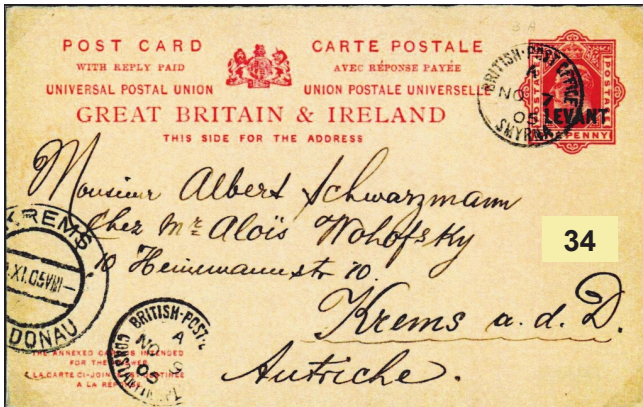 POST CARD
WITH REPLY PAID
UNIVERSAL POSTAL UNION
CARTE POSTALE
AVEC RÉPONSE PAYÉE
UNION POSTALE UNIVERSELLE
GREAT BRITAIN & IRELAND
THIS SIDE FOR THE ADDRESS
BRITISH·POST OFFICE
A
NO 7
05
SMYRNA
POSTAGE
LEVANT
PENNY
Monsieur Albert Schwarzmann
Chez Mr Aloïs Wohofsky
10 Heinemannstr 10.
Krems a.d.D.
Autriche.
34
KREMS
XI.05
DONAU
BRITISH-POST
A
NO 9
05
THE ANNEXED CARD IS INTENDED
FOR THE
LA CARTE CI-JOINTE
A LA